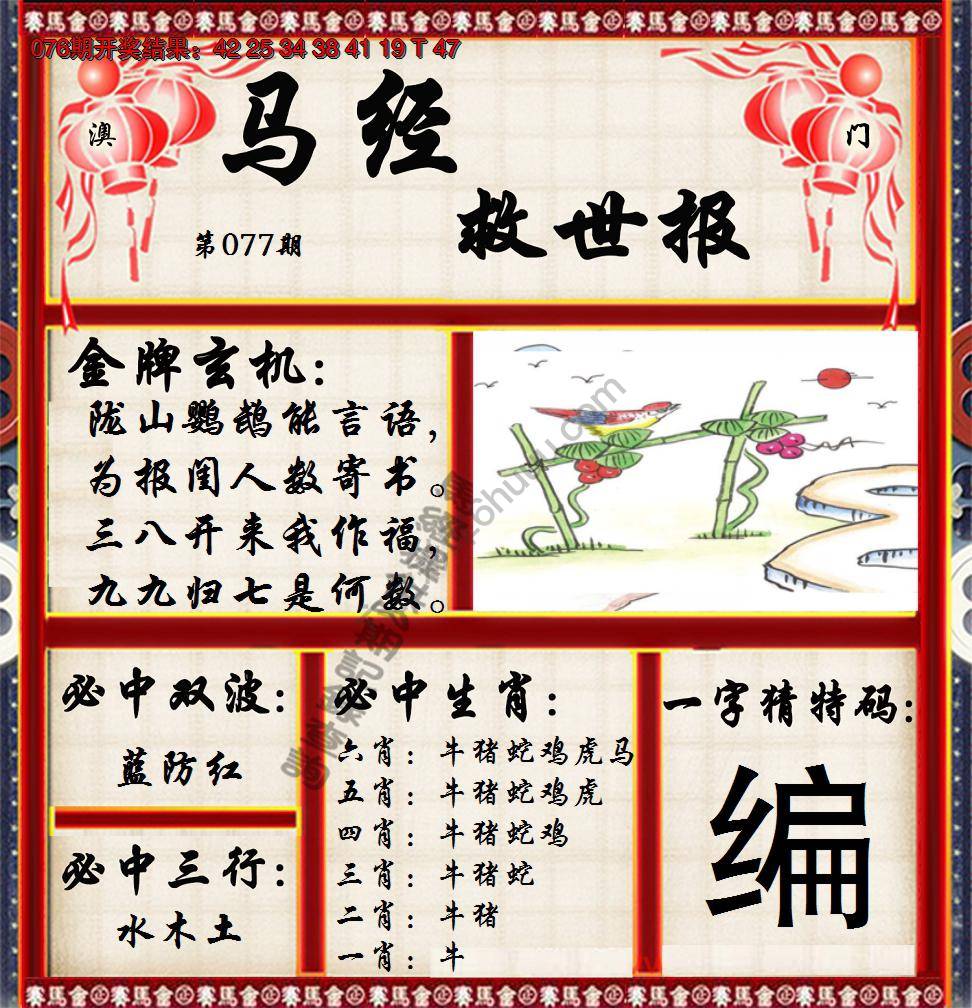 赛马会
076期开奖结果：42 25 34 38 41 19 T 47
澳
门
马经
救世报
第077期
金牌玄机：
陇山鹦鹉能言语，
为报闺人数寄书。
三八开来我作福，
九九归七是何数。
必中双波：
蓝防红
必中三行：
水木土
必中生肖：
六肖：牛猪蛇鸡虎马
五肖：牛猪蛇鸡虎
四肖：牛猪蛇鸡
三肖：牛猪蛇
二肖：牛猪
一肖：牛
一字猜特码：
编